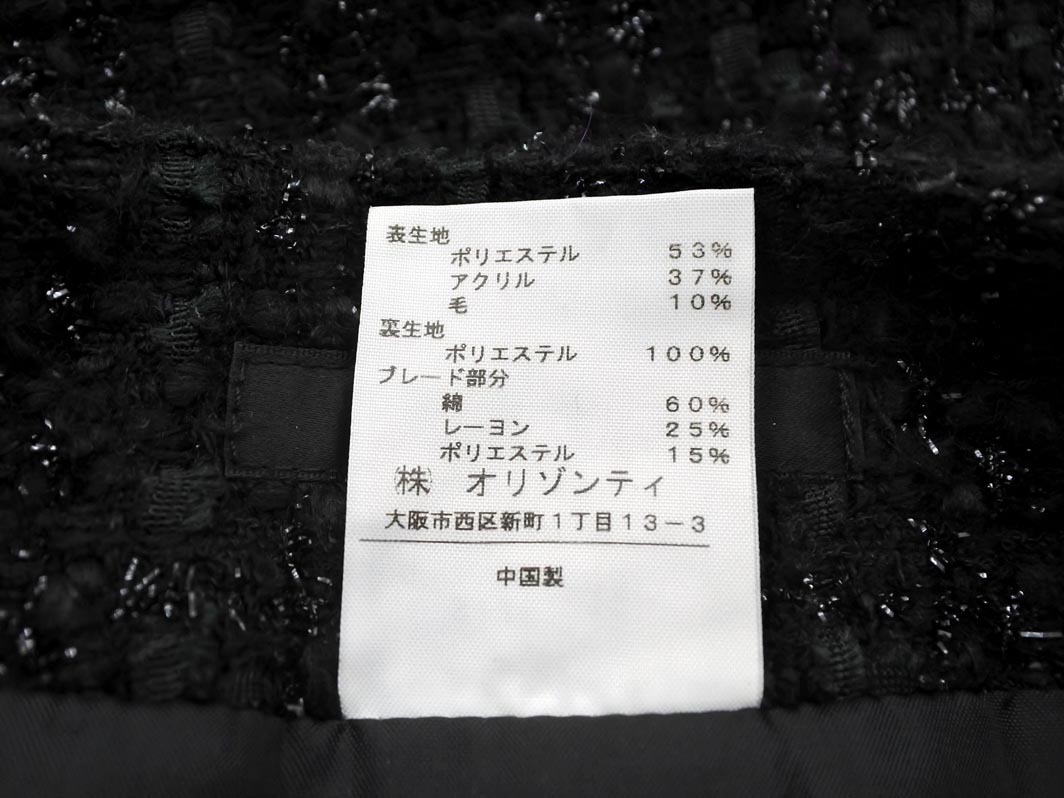 表生地
ポリエステル 53%
アクリル 37%
毛 10%
裏生地
ポリエステル 100%
ブレード部分
綿 60%
レーヨン 25%
ポリエステル 15%
㈱ オリゾンティ
大阪市西区新町1丁目13-3
中国製